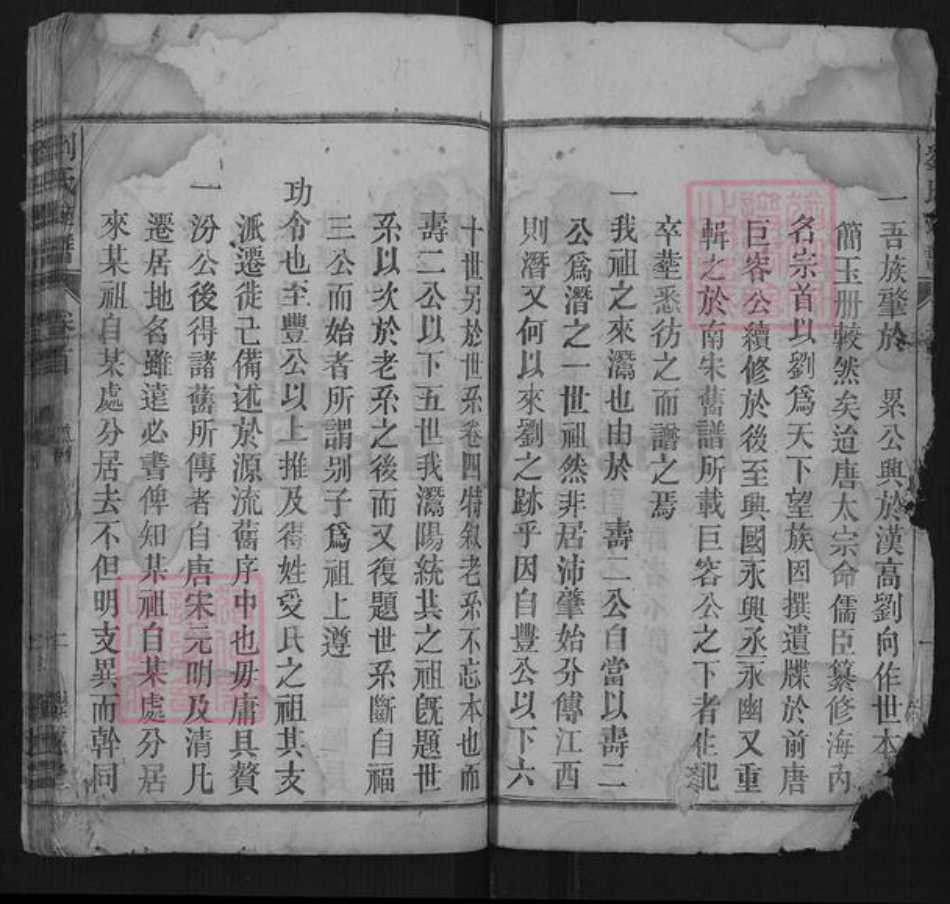 一吾族肇於 累公興於漢高劉向作世本
簡玉册較然矣迨唐太宗命儒臣纂修海內
名宗首以劉爲天下望族因撰遺牒於前唐
巨容公續修於後至興國永興丞永幽又重
輯之於南宋舊譜所載巨容公之下者生配
卒塟悉彷之而譜之焉
一我祖之來灊也由於 壽二公自當以壽二
公爲潛之一世祖然非居沛肇始分傳江西
則潛又何以來劉之跡乎因自豐公以下六
十世另於世系卷四特叙老系不忘本也而
壽二公以下五世我灊陽統共之祖旣題世
系以次於老系之後而又復題世系斷自福
三公而始者所謂别子爲祖上遵
功令也至豐公以上推及得姓受氏之祖其支
派遷徙已備述於源流舊序中也毋庸具贅
一汾公後得諸舊所傳者自唐宋元明及清凡
遷居地名雖遠必書俾知某祖自某處分居
來某祖自某處分居去不但明支異而幹同
劉氏 譜 卷首